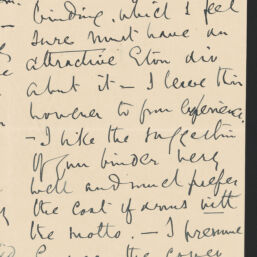 binding, which I feel
sure must have an
attractive Eton div
about it — I leave this
however to your experience.
— I like the suggestion
of your binder very
well and much prefer
the coat of arms with
the motto. — I presume
the cover